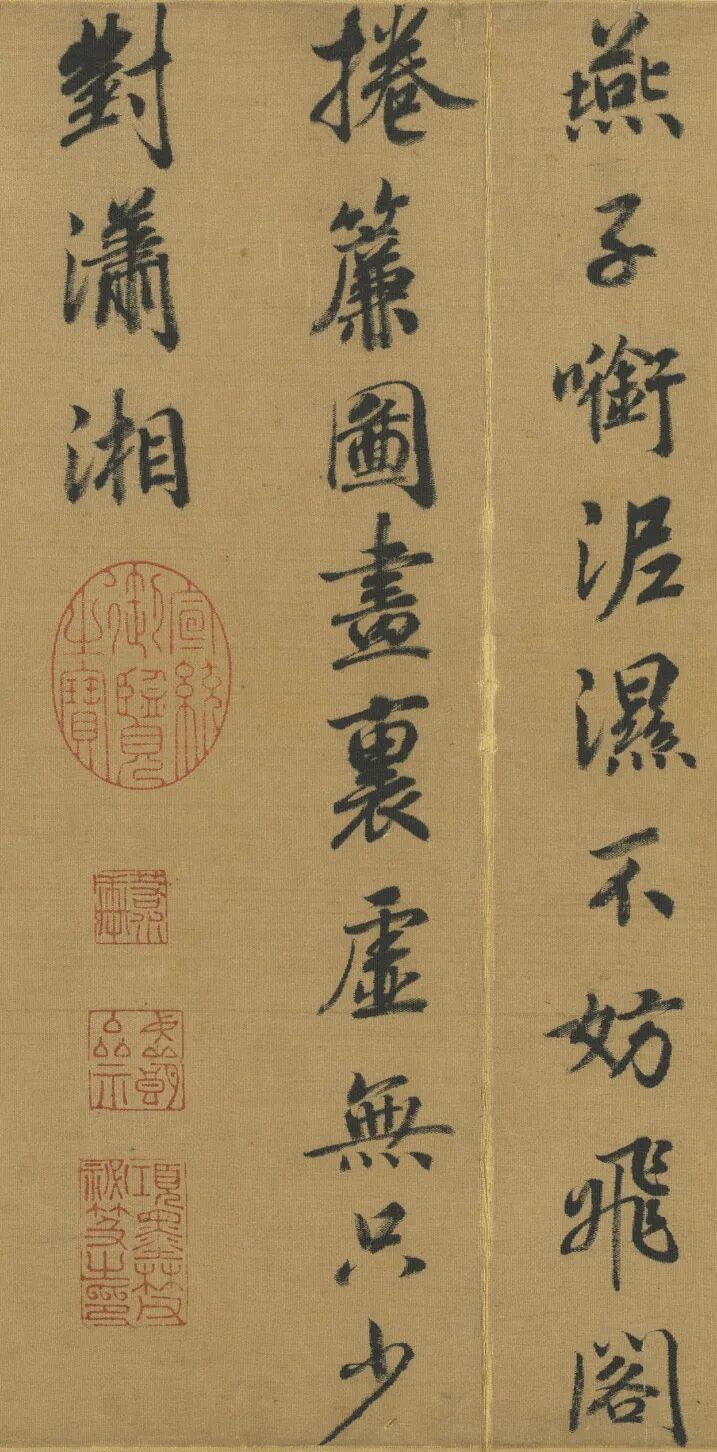 燕子㘅泥濕不妨飛閣
捲簾圖畫裏虛無只少
對瀟湘
宣統御覽之寶
項墨林父祕笈之印